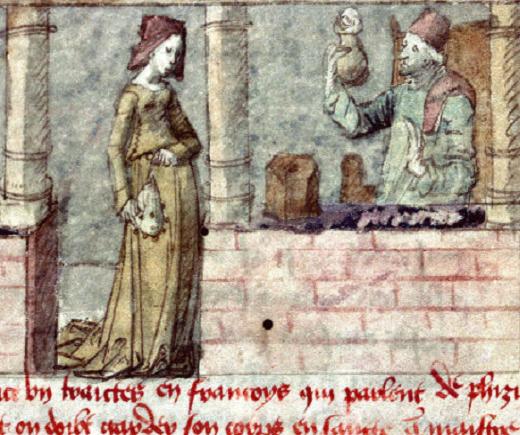 un traictes en francoys qui parlent De phizi
on doibt garder son corps en sante A maistre